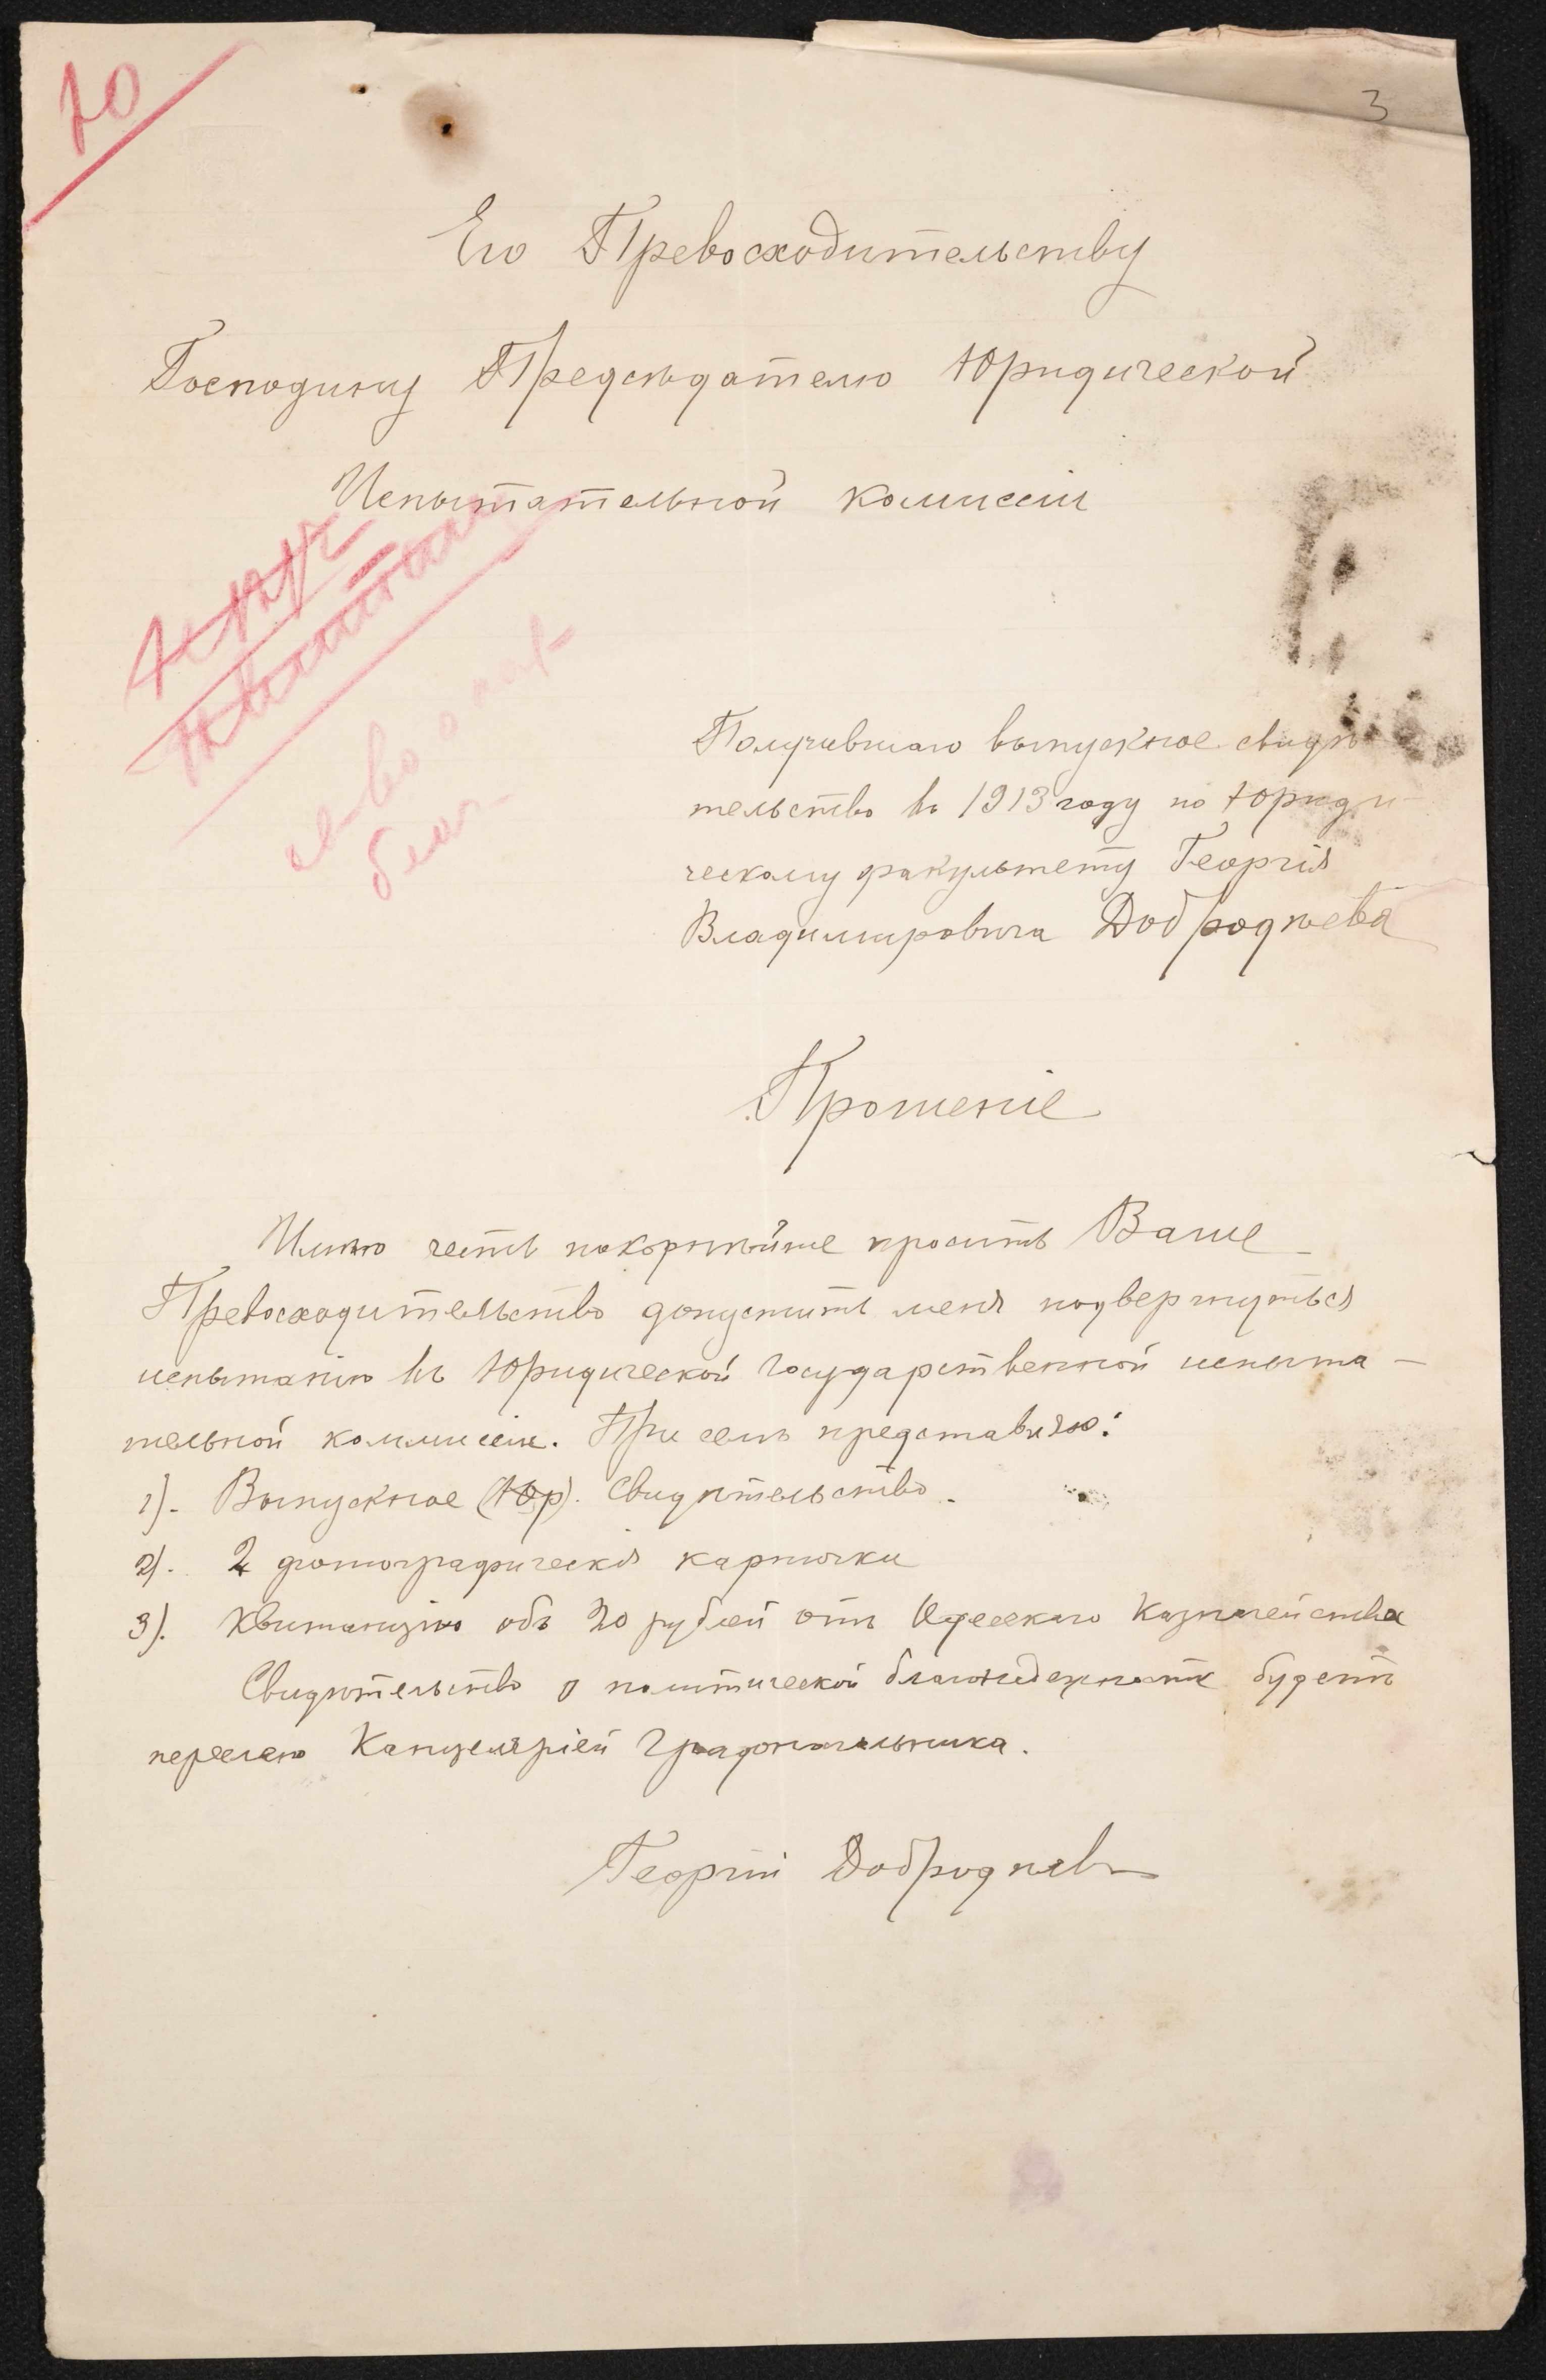 10
3
Его Превосходительству
Господину Предсѣдателю Юридической
Испытательной комиссіи
Получившаго выпускное свидѣ
тельство въ 1913 году по юриди-
ческому факультету Георгія
Владимировича Добродѣева
Прошеніе
Имѣю честь покорнѣйше просить Ваше
Превосходительство допустить меня подвергнуться
испытанію въ Юридической Государственной испыта-
тельной коммиссіи. При семъ представляю:
1). Выпускное (Юр). Свидѣтельство.
2). 2 фотографическія карточки
3). Квитанцію объ 20 рублей отъ Одесскаго Казначейства
Свидѣтельство о политической благонадежности будетъ
Канцеляріей Градоначальника.
Георгій Добродѣевъ